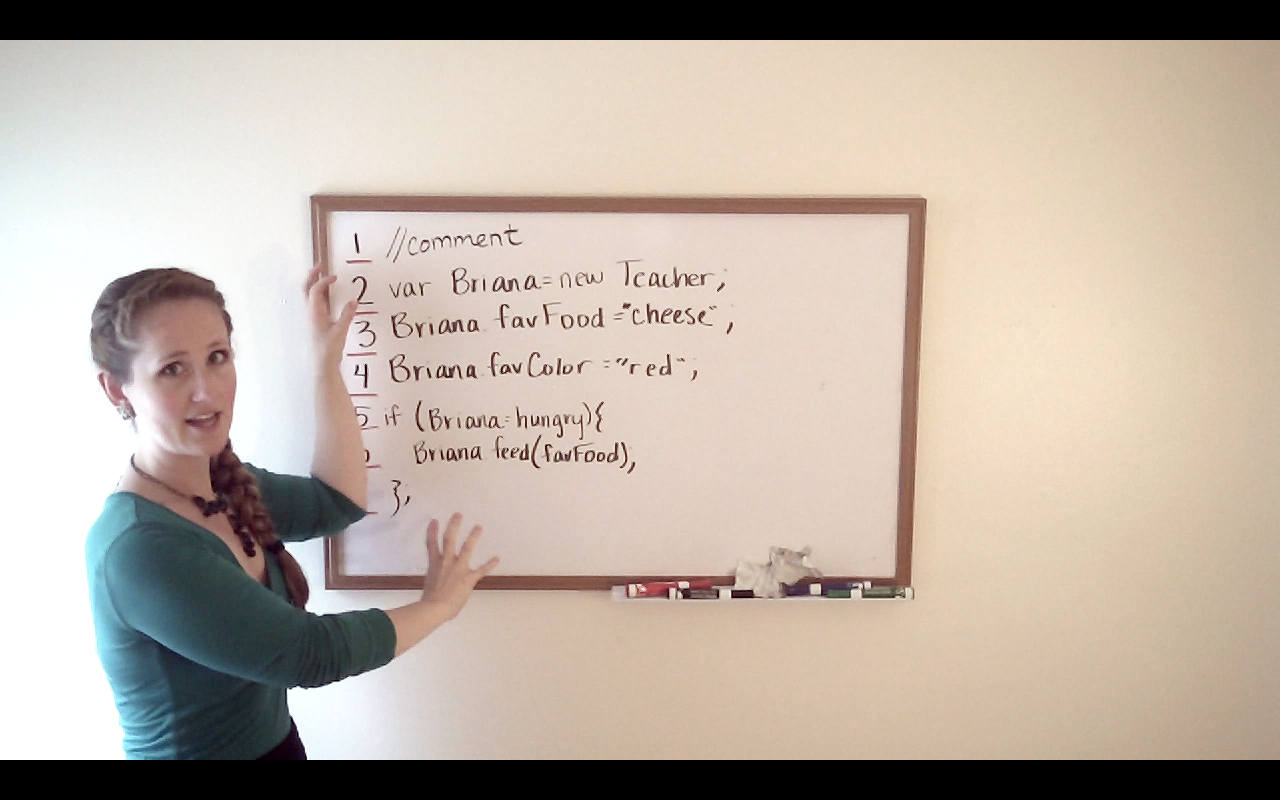 1 //comment
2 var Briana=new Teacher;
3 Briana.favFood="cheese";
4 Briana.favColor="red";
5 if (Briana=hungry){
Briana feed(favFood);
};